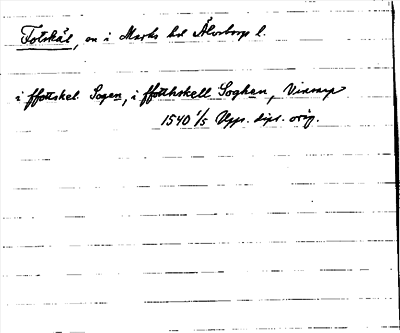 Fotskäl, sn i Marks hd Älvsborgs l.
i ffottskel Sogen, i ffotthskell Soghen, Vinsarp
1540 1/5 Upps. dipl. orig.